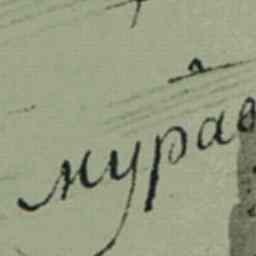 мурав